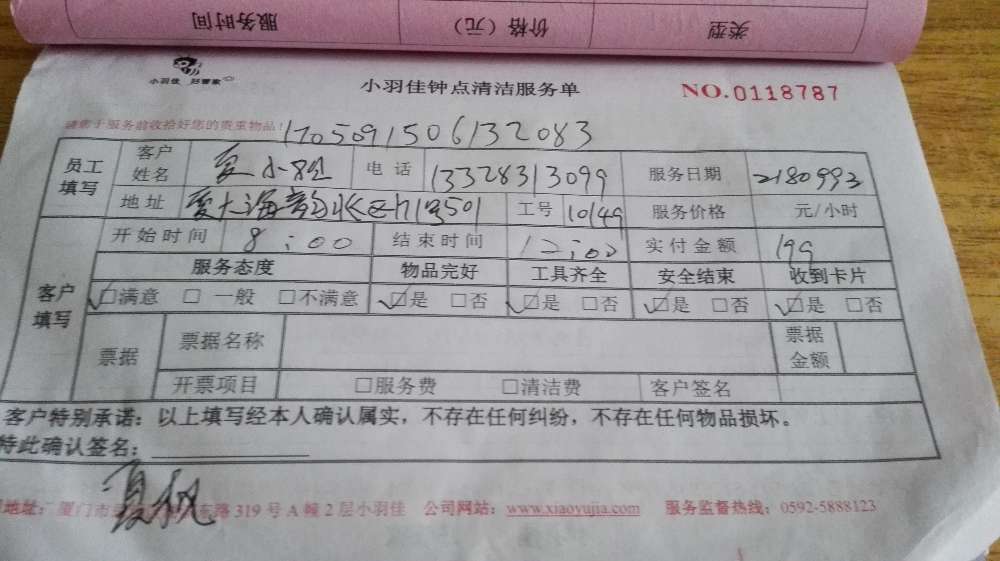 服务时间 价格（元） 类型
小羽佳 好管家
小羽佳钟点清洁服务单 NO.0118787
请您于服务前收拾好您的贵重物品！ 1705091506132083
员工填写 客户姓名 夏小姐 电话 13328313099 服务日期 2180993
地址 501 工号 10149 服务价格 元/小时
客户填写 开始时间 8:00 结束时间 12:00 实付金额 199
服务态度 物品完好 工具齐全 安全结束 收到卡片
☑满意 □一般 □不满意 ☑是 □否 ☑是 □否 ☑是 □否 ☑是 □否
票据 票据名称 票据金额
开票项目 □服务费 □清洁费 客户签名
客户特别承诺：以上填写经本人确认属实，不存在任何纠纷，不存在任何物品损坏。
特此确认签名：
夏枫
地址：厦门市 东路319号A幢2层小羽佳 公司网站：www.xiaoyujia.com 服务监督热线：0592-5888123